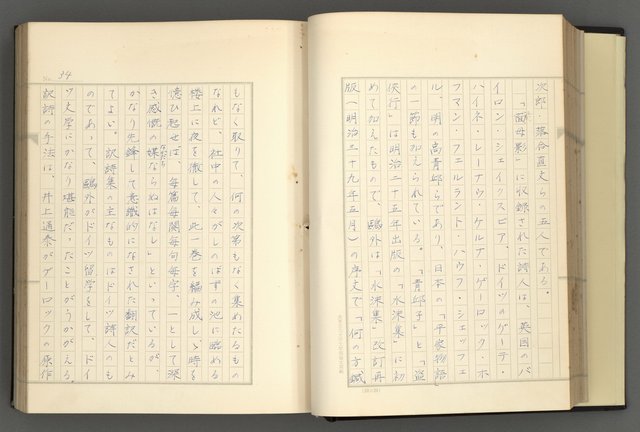 次郎・落合直文らの五人である。
「於母影」に収録された詩人は、英国のバ
イロン・シェイクスピア、ドイツのゲーテ・
ハイネ・レーナウ・ケルナ・ゲーロック・ホ
フマン・フェルランド・ハウフ・シェッフェ
ル、明の高青邱らであり、日本の「平家物語」
の一節も加えられている。「青邱子」と「盗
侠行」は明治二十五年出版の「水沫集」に初
めて加えたもので、鷗外は「水沫集」改訂再
版(明治三十九年五月)の序文で「何の方鍼
No. 34
もなく取りて、何の次第もなく集めたるもの
なれど、社中の人々がしのばずの池に臨める
楼上に夜を徹して、此一巻を編み成しゝ時を
憶ひ起せば、毎篇毎闋毎句毎字、一として深
き感慨の媒ならぬはなし」といっているが、
なかだち
かなり先鋒して意識的になされた翻訳だとみ
てよい。訳詩集の主なものはドイツ詩人のも
のであって、鷗外がドイツ留学をして、ドイ
ツ文学にかなり堪能だったことがうかがえる。
訳詩の手法は、井上通泰がゲーロックの原作